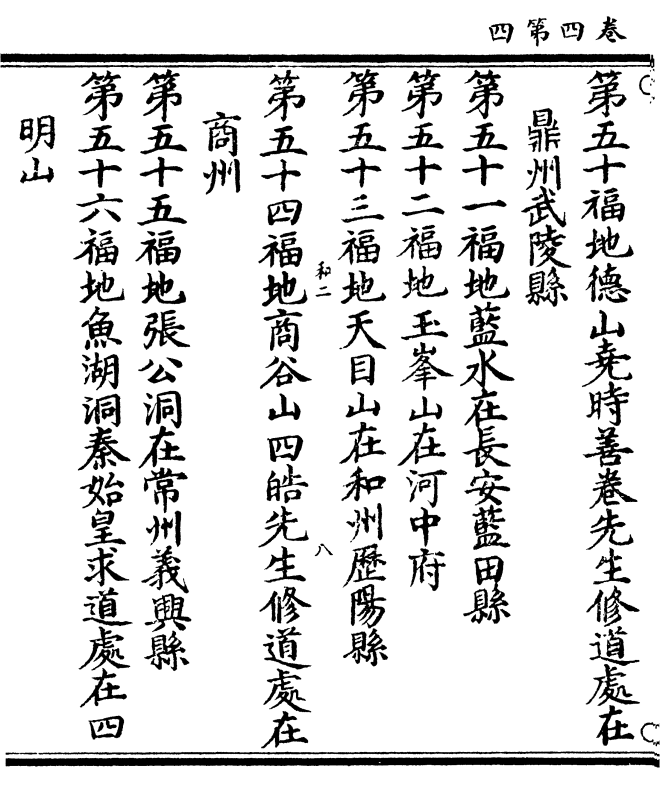 卷四第四
第五十福地德山堯時善卷先生修道處在
鼎州武陵縣
第五十一福地藍水在長安藍田縣
第五十二福地玉峯山在河中府
第五十三福地天目山在和州歷陽縣
和二
八
第五十四福地商谷山四皓先生修道處在
商州
第五十五福地張公洞在常州義興縣
第五十六福地魚湖洞秦始皇求道處在四
明山